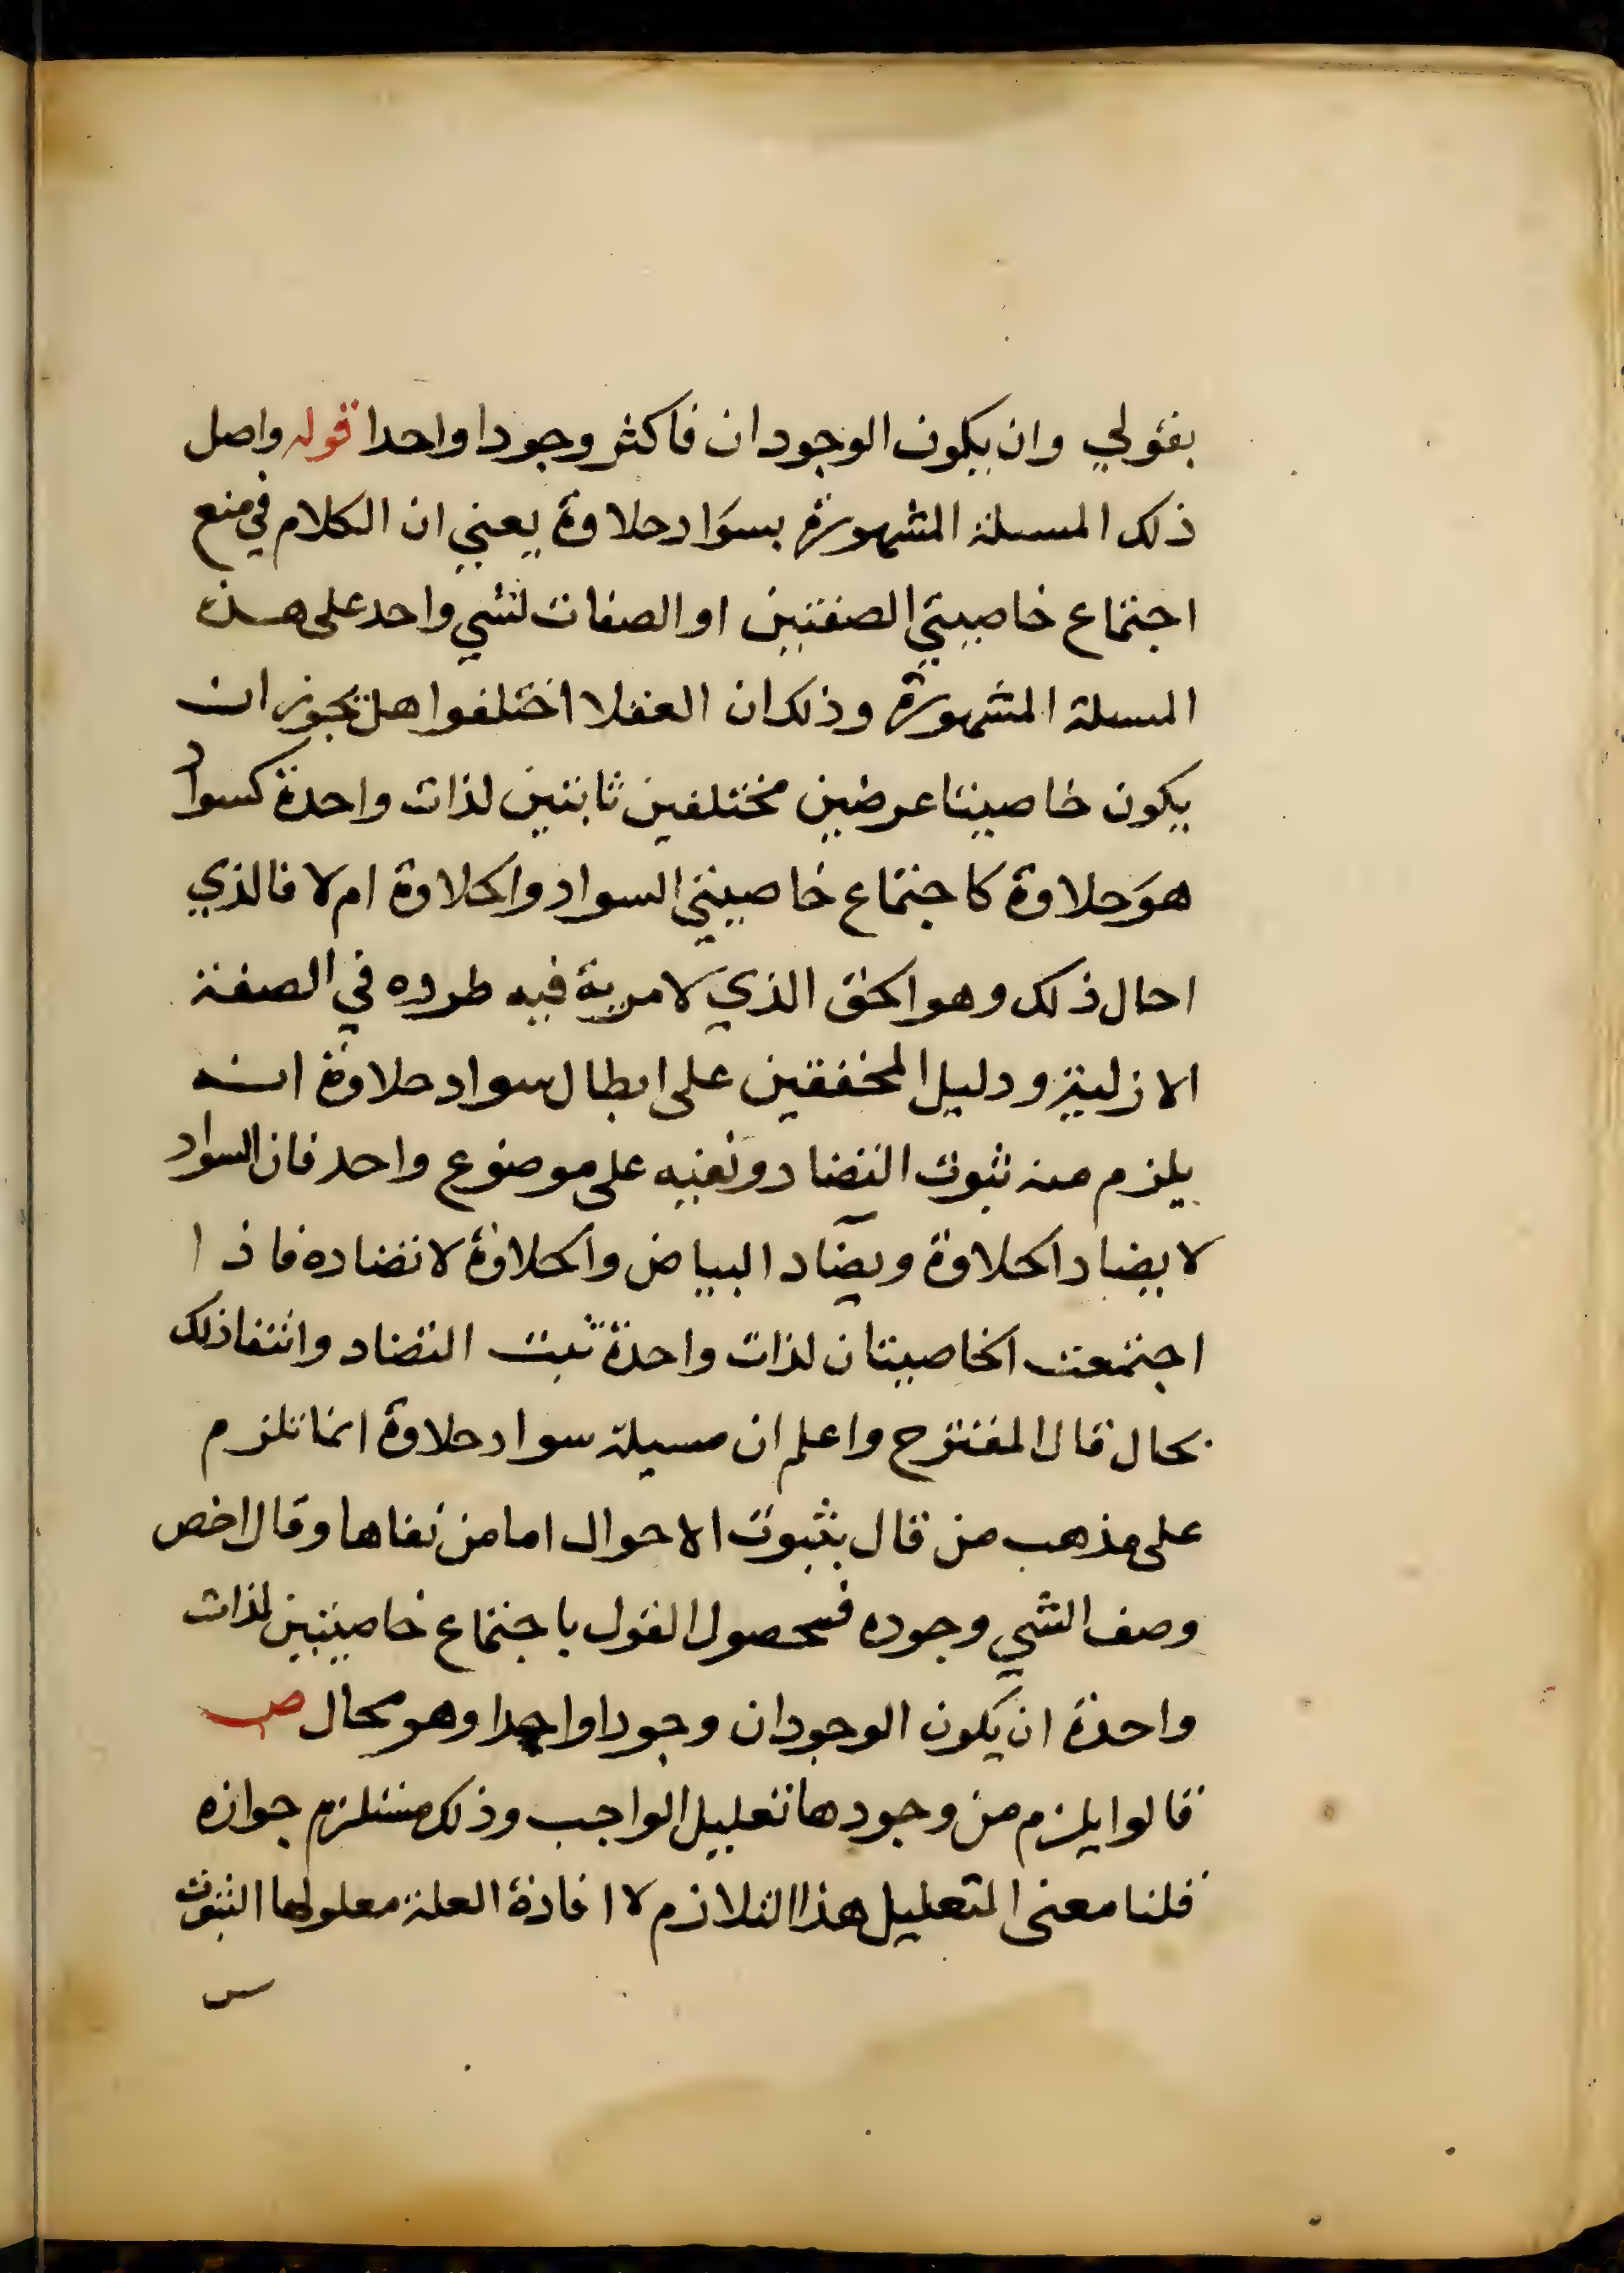 بقولي وان يكون الوجودان فاكثر وجودا واحدا قوله واصل
ذلك المسئلة المشهورة بسواد حلاوة يعني ان الكلام في منع
اجتماع خاصيتي الصفتين او الصفات لشي واحد على هذه
المسلة المشهورة وذلك ان العقلا اختلفوا هل يجوز ان
يكون خاصيتا عرضين مختلفين ثابتتين لذات واحدة كسواد
هو حلاوة كاجتماع خاصيتي السواد والحلاوة ام لا فالذي
احال ذلك وهو الحق الذي لا مرية فيه طرده في الصفة
الازلية ودليل المحققين على ابطال سواد حلاوة انه
يلزم منه ثبوت التضاد ونفيه على موضوع واحد فان السواد
لا يضاد الحلاوة ويضاد البياض والحلاوة لا تضاده فاذا
اجتمعت الخاصيتان لذات واحدة ثبت التضاد وانتفا ذلك
محال قال المقترح واعلم ان مسيلة سواد حلاوة انما تلزم
على مذهب من قال بثبوت الاحوال اما من نفاها وقال اخص
وصف الشي وجوده فمحصول القول باجتماع خاصيتين لذات
واحدة ان يكون الوجودان وجودا واحدا وهو محال ص
قالوا يلزم من وجودها تعليل الواجب وذلك مستلزم جوازه
قلنا معنى التعليل هذا التلازم لا افادة العلة معلولها الثبوت
س